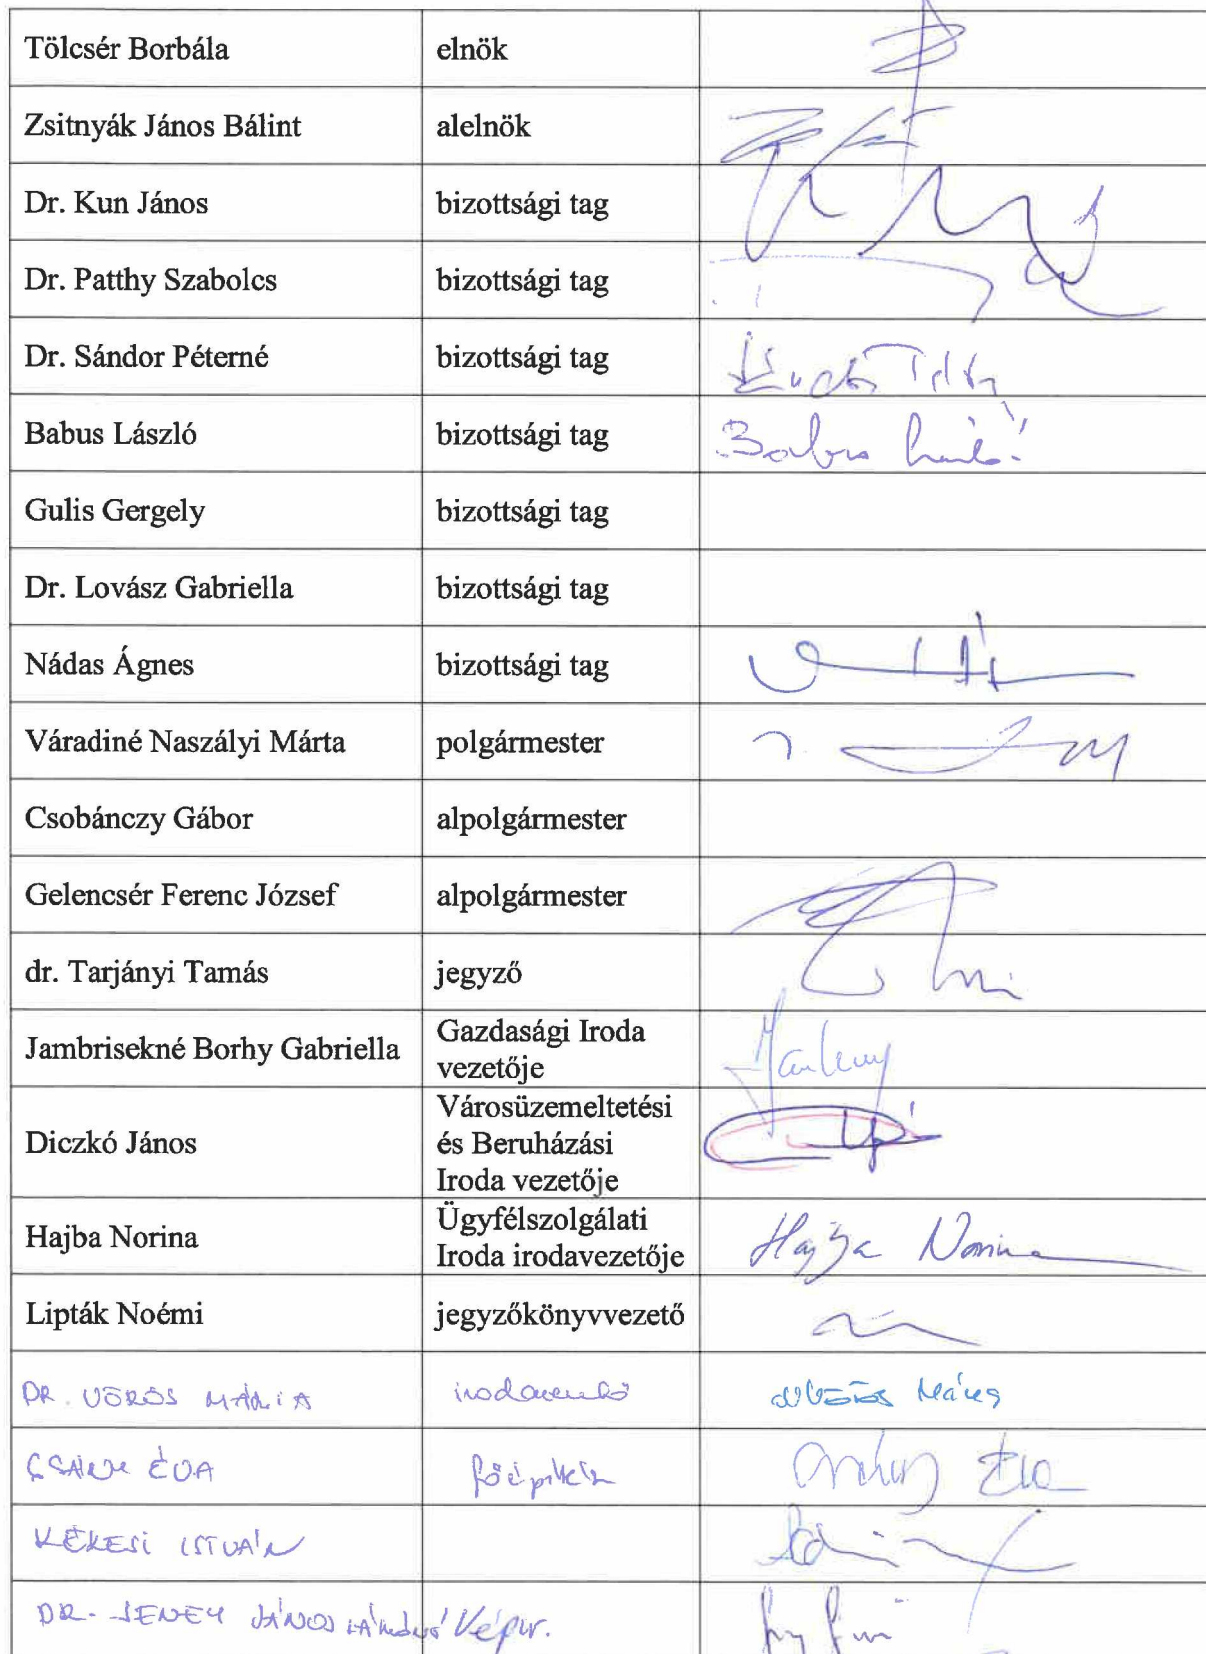 Tölcsér Borbála elnök
Zsitnyák János Bálint alelnök
Dr. Kun János bizottsági tag
Dr. Patthy Szabolcs bizottsági tag
Dr. Sándor Péterné bizottsági tag
Babus László bizottsági tag
Gulis Gergely bizottsági tag
Dr. Lovász Gabriella bizottsági tag
Nádas Ágnes bizottsági tag
Váradiné Naszályi Márta polgármester
Csobánczy Gábor alpolgármester
Gelencsér Ferenc József alpolgármester
dr. Tarjányi Tamás jegyző
Jambrisekné Borhy Gabriella Gazdasági Iroda
vezetője
Diczkó János Városüzemeltetési
és Beruházási
Iroda vezetője
Hajba Norina Ügyfélszolgálati
Iroda irodavezetője Hajba Norina
Lipták Noémi jegyzőkönyvvezető
DR. VÖRÖS MÁRIA irodavezető
ÉVA főépítész
KÉKESI ISTVÁN
DR. JENEY JÁNOS Képv.